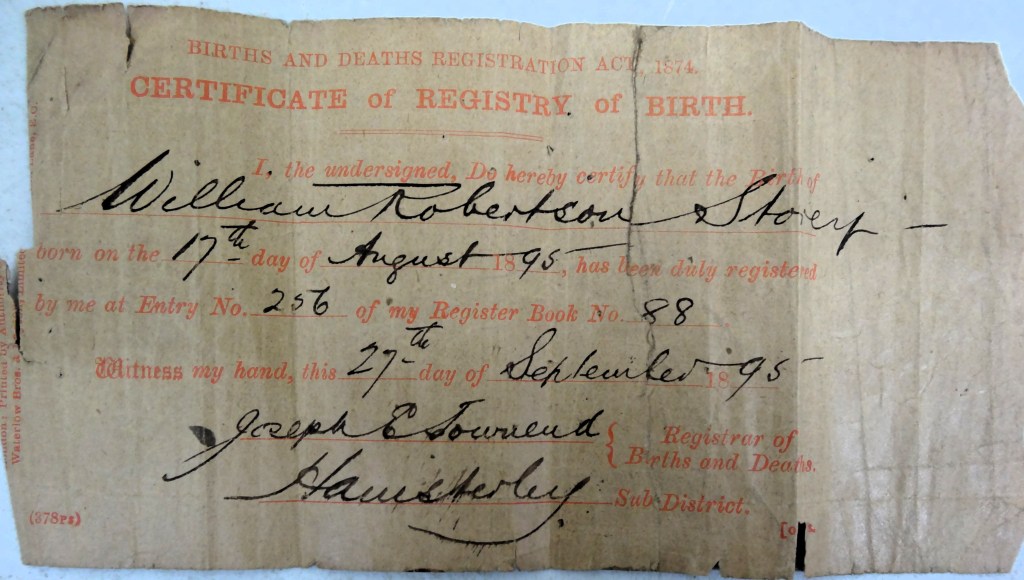 BIRTHS AND DEATHS REGISTRATION ACT, 1874.
CERTIFICATE of REGISTRY of BIRTH.
I, the undersigned, Do hereby certify that the Birth of
William Robertson Storey
born on the 17th day of August 1895, has been duly registered
by me at Entry No. 256 of my Register Book No. 88.
Witness my hand, this 27th day of September 1895
Joseph E Townend { Registrar of
Births and Deaths.
Hamsterley Sub District.
(378rs)
Printed by Autho
Waterlow Bros. &